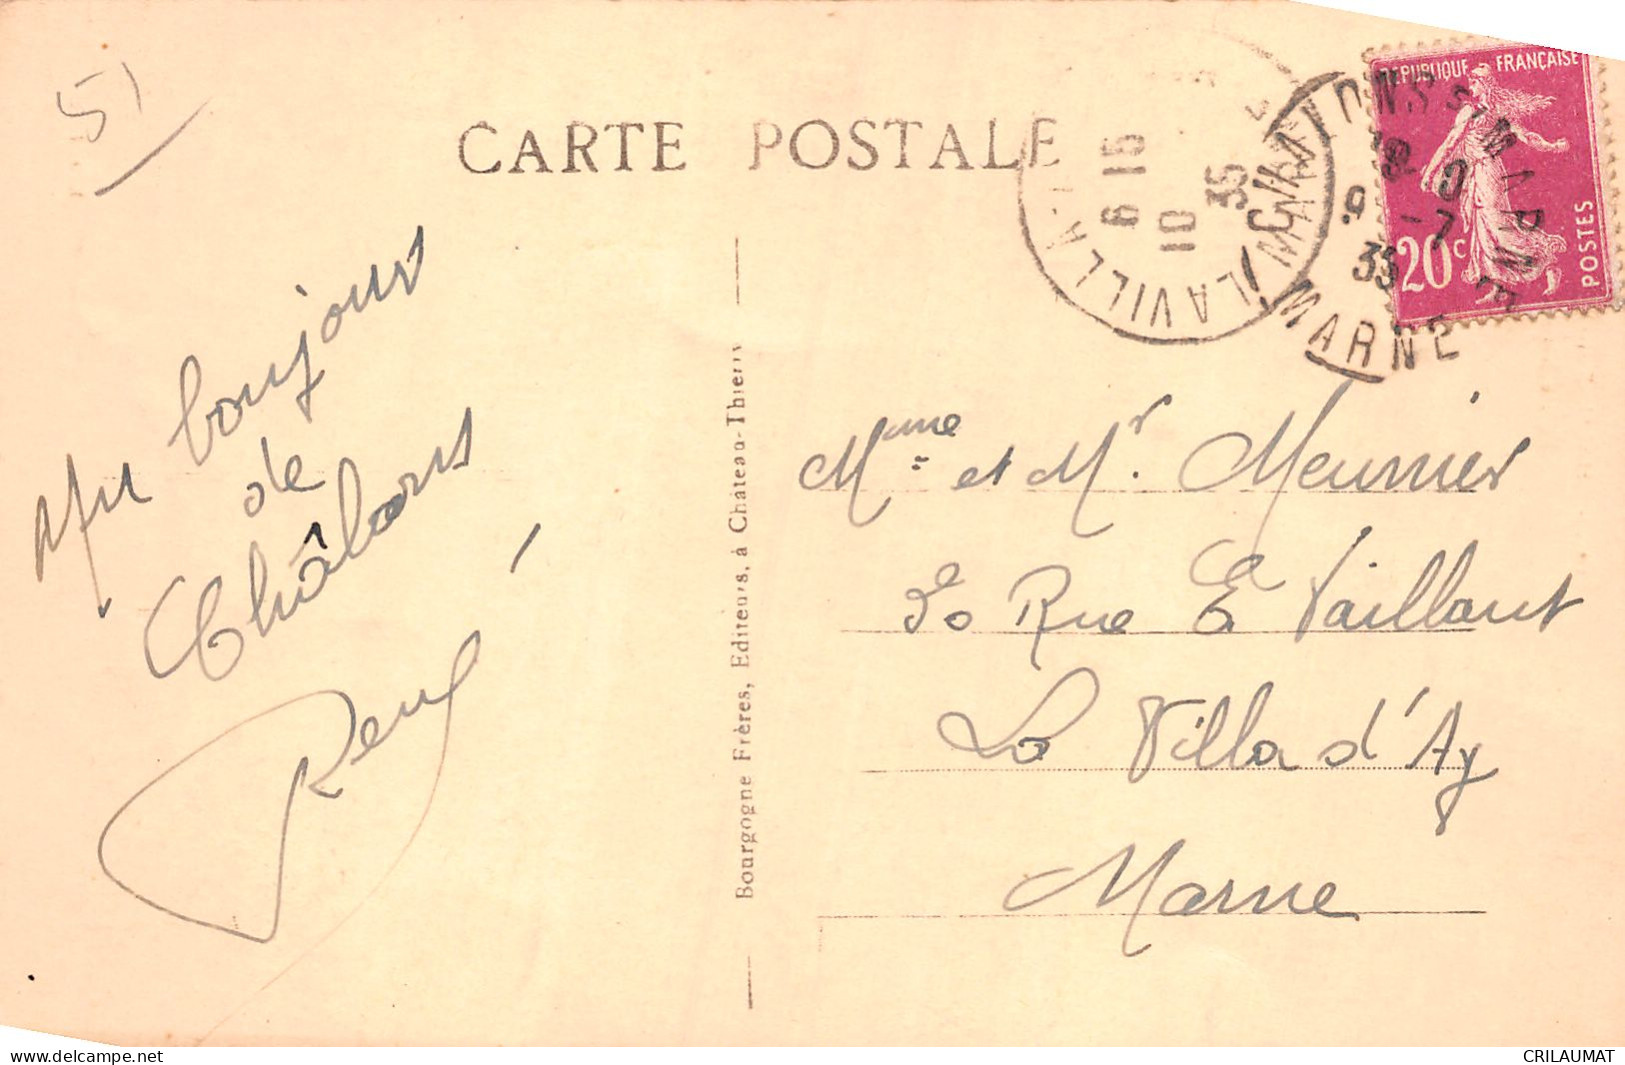 51
CARTE POSTALE
Un bonjour
de
Châlons
René
Bourgogne Frères, Editeurs, à Château-Thierry
6 15
10
35
LA VILLA
MARNE
CHALONS S. MARNE
9 -7
35
MARNE
REPUBLIQUE FRANÇAISE
20c
POSTES
Mme et Mr. Meunier
30 Rue E Vaillant
La Villa d'Ay
Marne
www.delcampe.net
CRILAUMAT